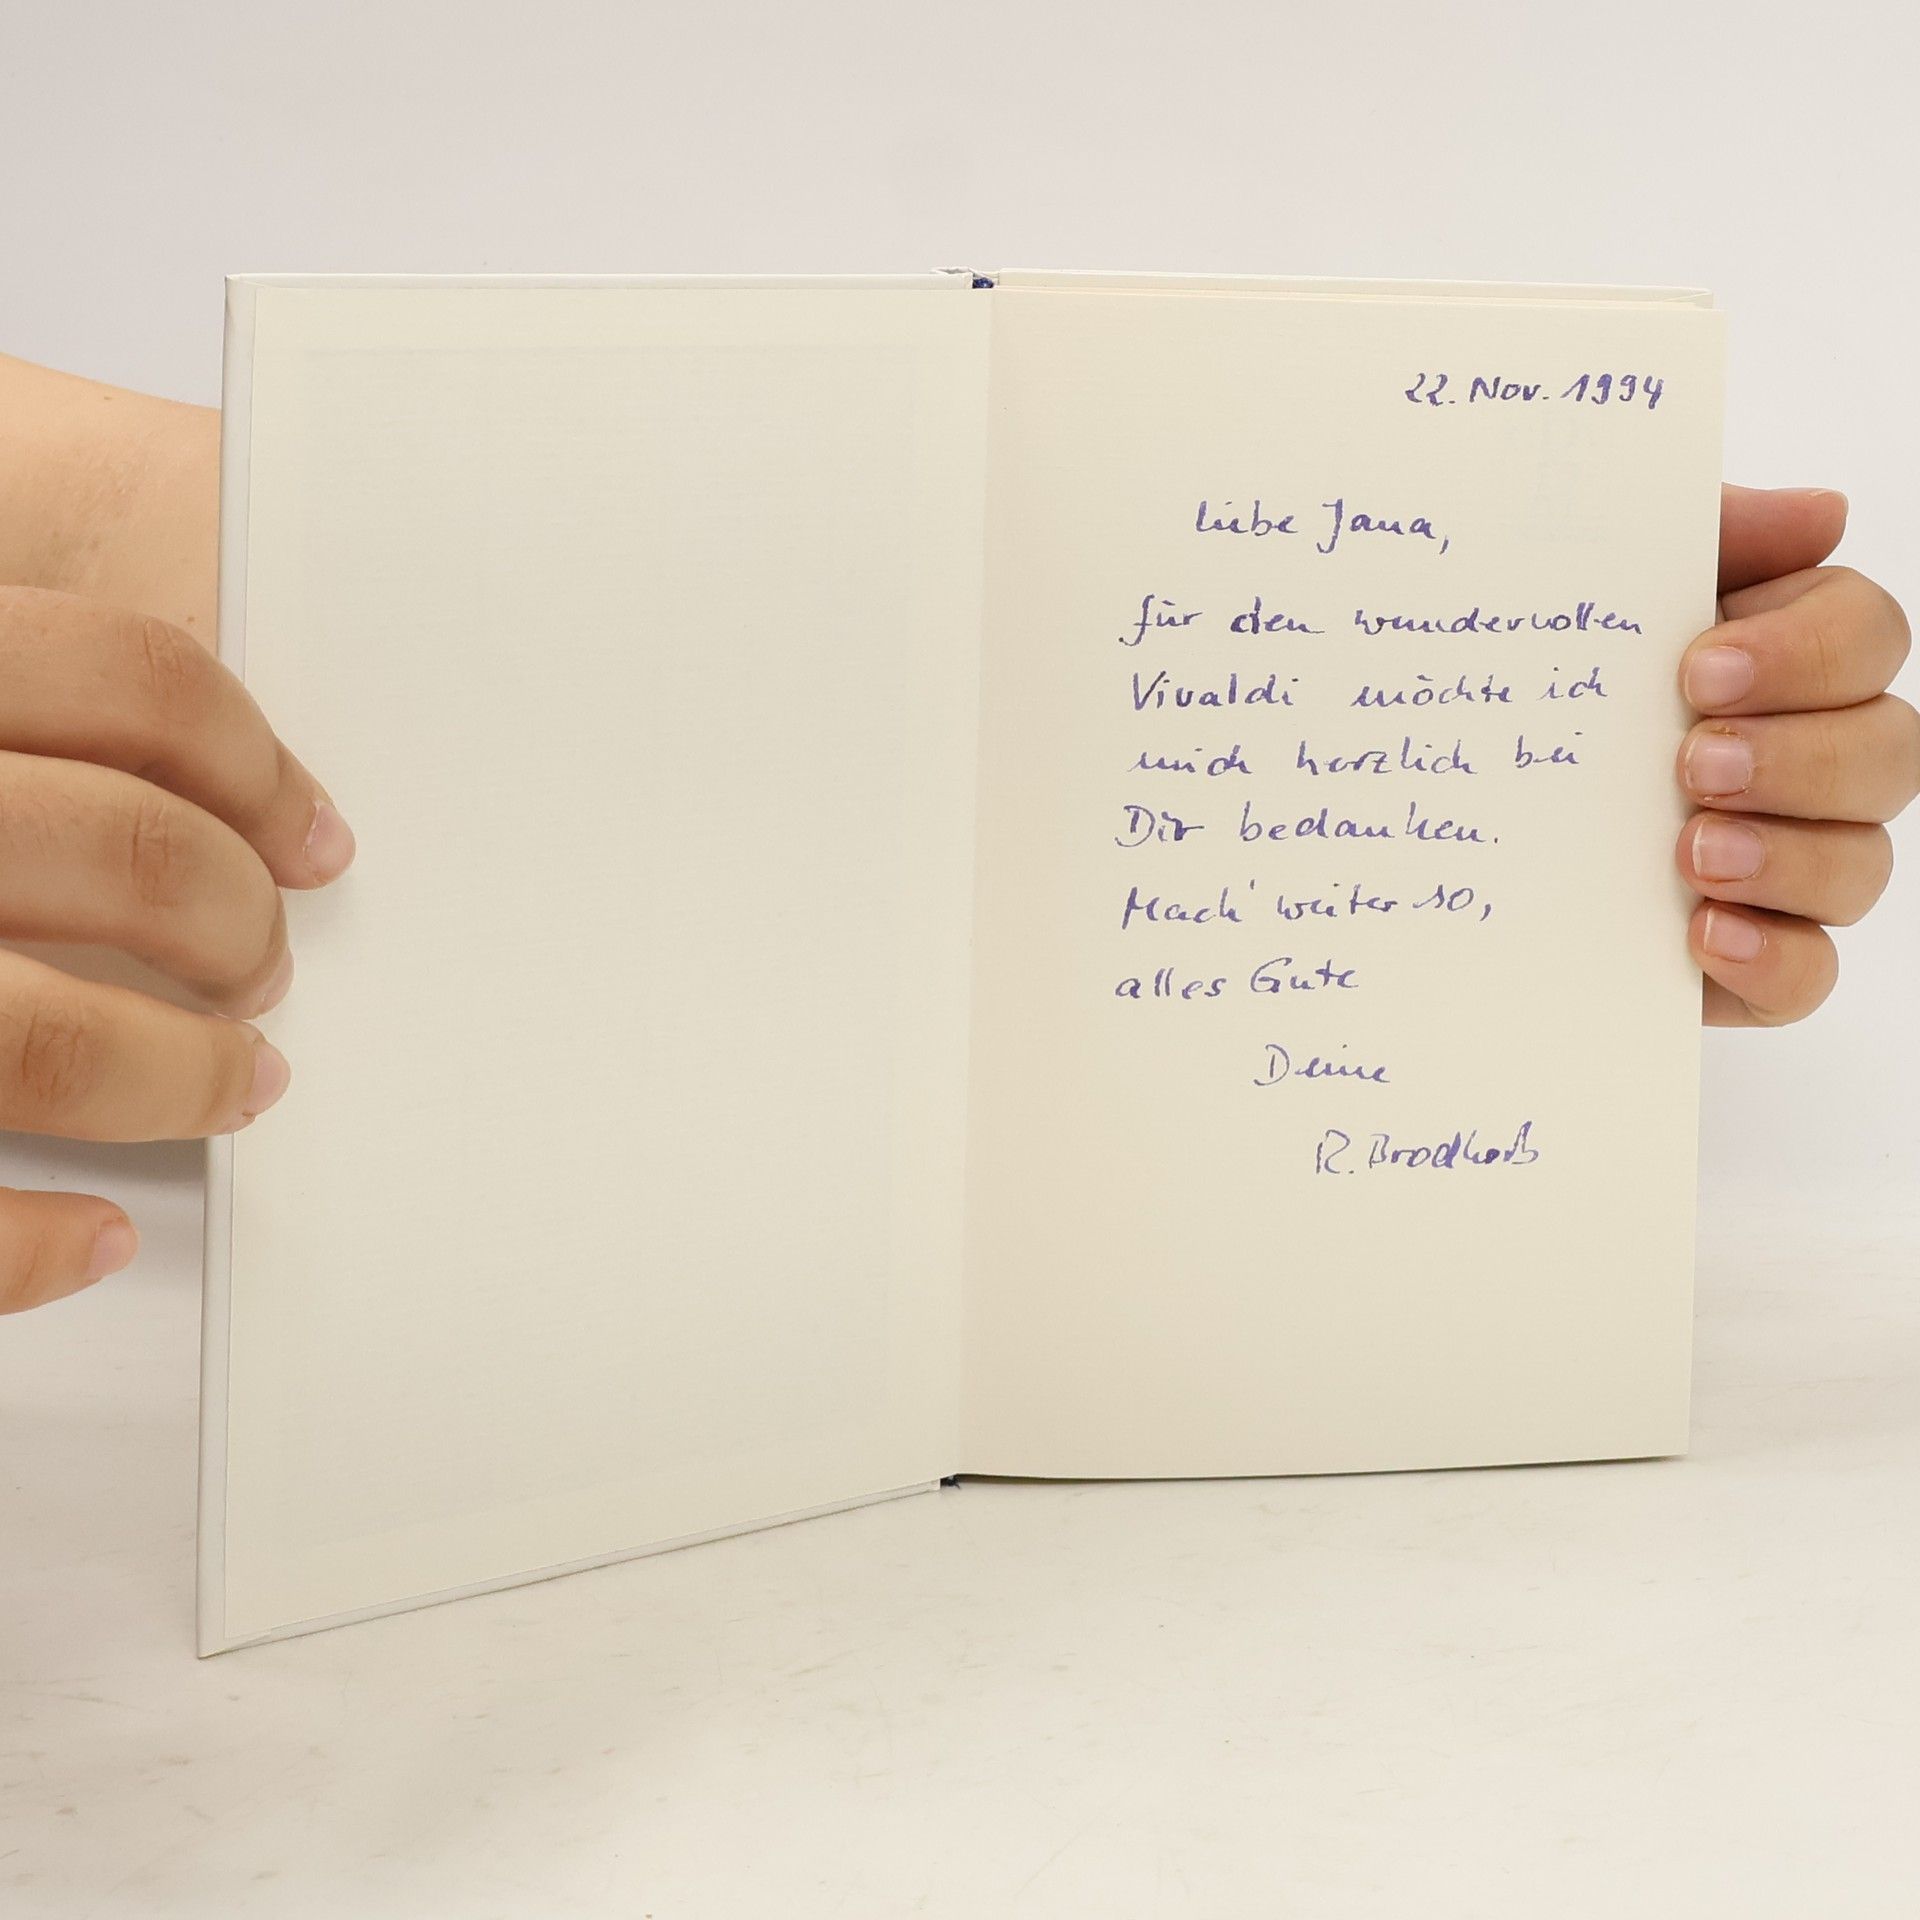 22. Nov. 1994
liebe Jana,
für den wundervollen
Vivaldi möchte ich
mich herzlich bei
Dir bedanken.
Mach' weiter so,
alles Gute
Deine
R.